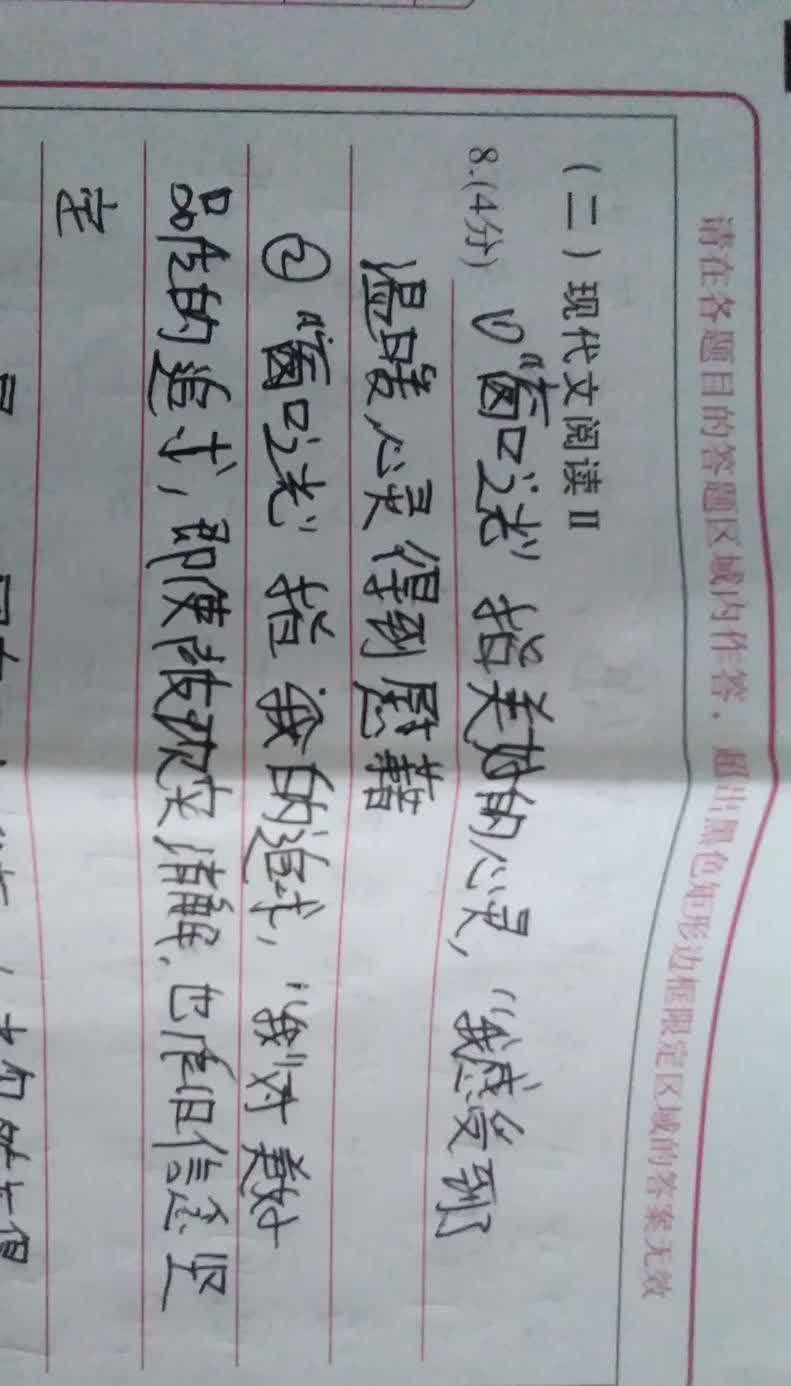 请在各题目的答题区域内作答，超出黑色矩形边框限定区域的答案无效
（二）现代文阅读Ⅱ
8.(4分) ①"窗口之光"指美好的心灵，"我感受到
温暖心灵得到慰藉
②"窗口之光"指我的追求，"我"对美好
品性的追求，即使被现实消解，也依旧信念坚
定